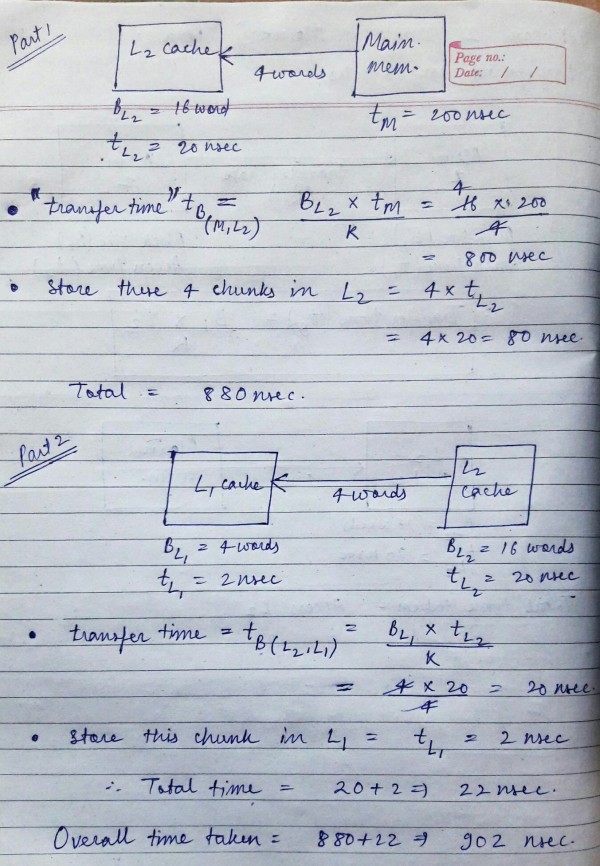 Part 1
L2 cache
4 words
Main. mem.
Page no.:
Date: / /
BL2 = 16 word
tM = 200 nsec
tL2 = 20 nsec
• "transfer time" tB(M,L2) = BL2 × tM / K = 4 16 × 200 / 4
= 800 nsec
• Store these 4 chunks in L2 = 4 × tL2
= 4 × 20 = 80 nsec.
Total = 880 nsec.
Part 2
L1 cache
4 words
L2 cache
BL1 = 4 words
BL2 = 16 words
tL1 = 2 nsec
tL2 = 20 nsec
• transfer time = tB(L2,L1) = BL1 × tL2 / K
= 4 × 20 / 4 = 20 nsec.
• Store this chunk in L1 = tL1 = 2 nsec
∴ Total time = 20 + 2 ⇒ 22 nsec.
Overall time taken = 880 + 22 ⇒ 902 nsec.